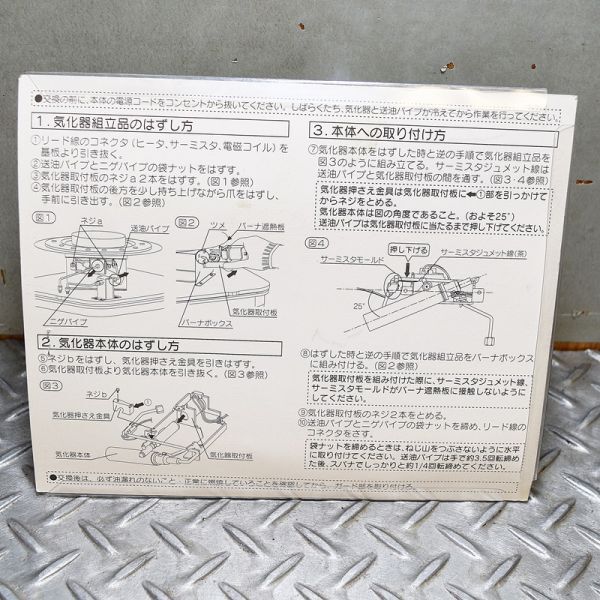 ●交換の前に、本体の電源コードをコンセントから抜いてください。しばらくたち、気化器と送油パイプが冷えてから作業を行ってください。
1．気化器組立品のはずし方
①リード線のコネクタ(ヒータ、サーミスタ、電磁コイル)を
基板より引き抜く。
②送油パイプとニゲパイプの袋ナットをはずす。
③気化器取付板のネジa2本をはずす。(図1参照)
④気化器取付板の後方を少し持ち上げながら爪をはずし、
手前に引き出す。(図2参照)
図1
ネジa
送油パイプ
ニゲパイプ
図2
ツメ
バーナ遮熱板
気化器取付板
バーナボックス
2．気化器本体のはずし方
⑤ネジbをはずし、気化器押さえ金具を引きはずす。
⑥気化器取付板より気化器本体を引き抜く。(図3参照)
図3
ネジb
①
気化器押さえ金具
気化器本体
気化器取付板
3．本体への取り付け方
⑦気化器本体をはずした時と逆の手順で気化器組立品を
図3のように組み立てる。サーミスタジュメット線は
送油パイプと気化器取付板の間を通す。(図3・4参照)
気化器押さえ金具は気化器取付板に⬅①部を引っかけて
からネジbをとめる。
気化器本体は図の角度であること。(およそ25°)
送油パイプは気化器取付板に当たるまで押し下げてください。
図4
押し下げる
サーミスタジュメット線(茶)
サーミスタモールド
25°
⑧はずした時と逆の手順で気化器組立品をバーナボックス
に組み付ける。(図2参照)
気化器取付板を組み付けた際に、サーミスタジュメット線、
サーミスタモールドがバーナ遮熱板に接触しないように
してください。
⑨気化器取付板のネジ2本をとめる。
⑩送油パイプとニゲパイプの袋ナットを締め、リード線の
コネクタをさす。
袋ナットを締めるときは、ねじ山をつぶさないように水平
に取り付けてください。送油パイプは手で約3.5回転締め
た後、スパナでしっかりと約1/4回転締めてください。
●交換後は、必ず油漏れのないこと、正常に燃焼していることを確認してから、ガード部を取り付ける。